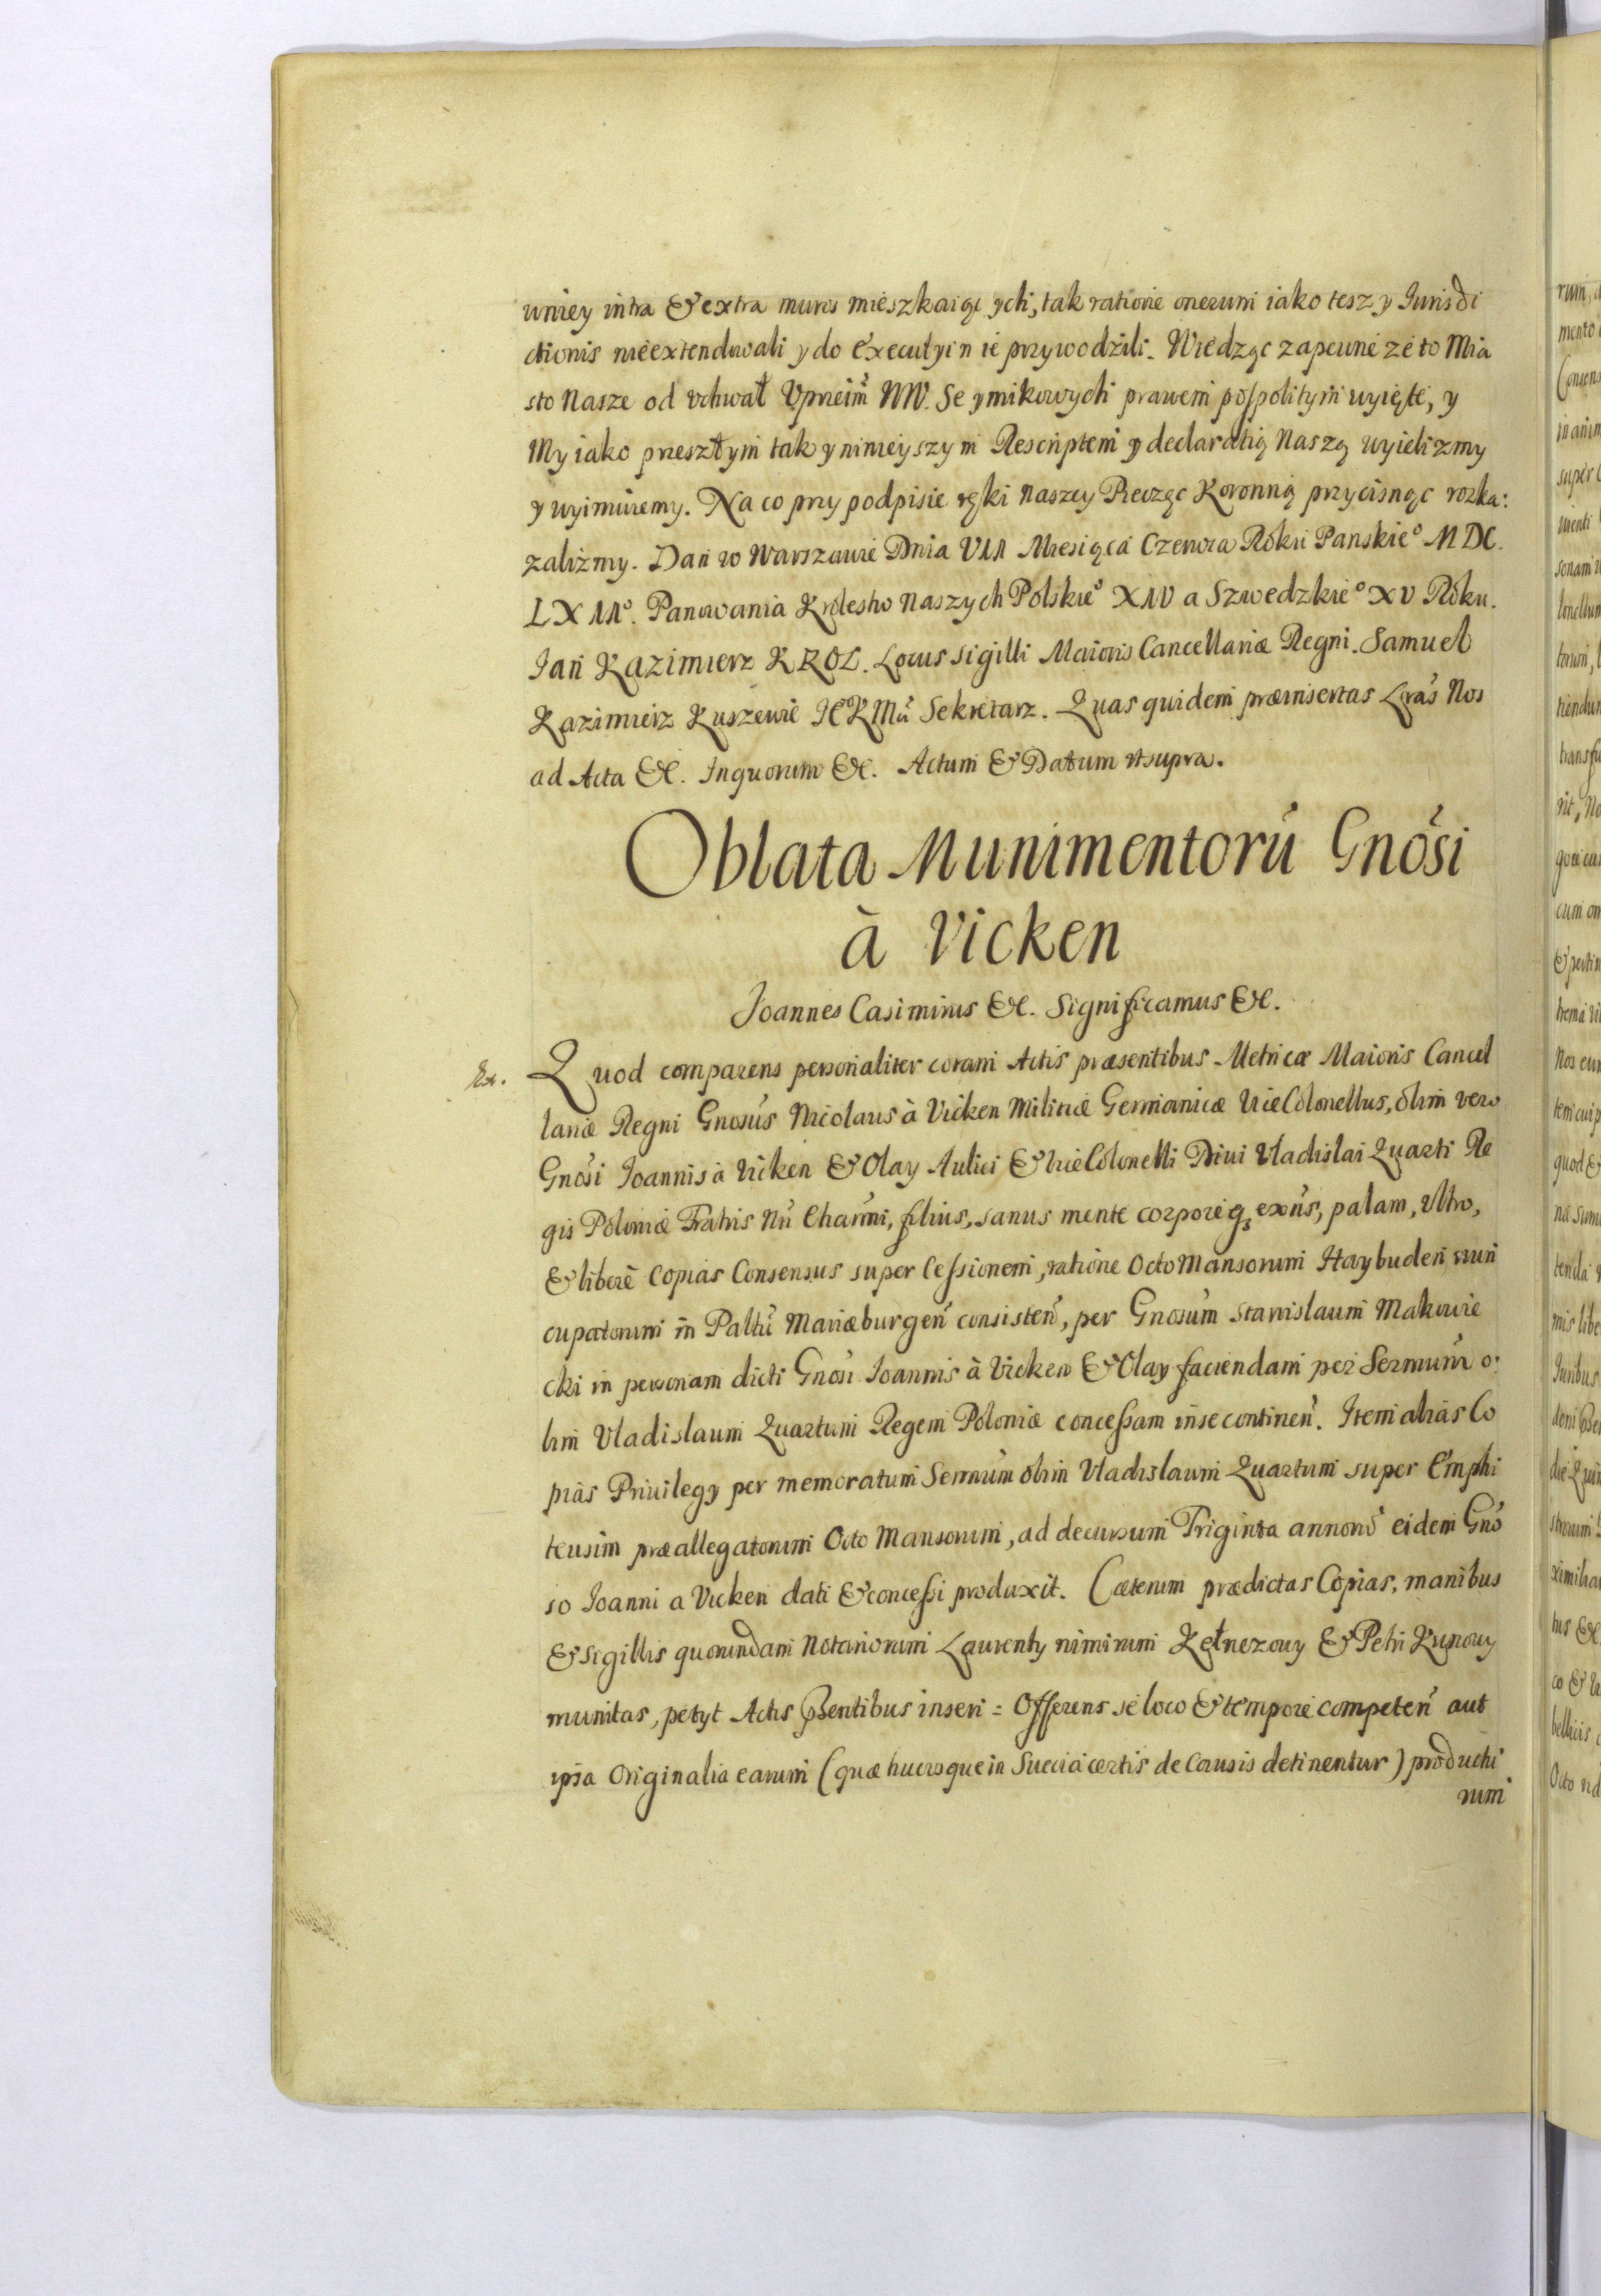 wniey intra & extra muros mieszkaiących, tak ratione onerum iako tesz y Iurisdi
ctionis nieextendowali y do Executyi nie przywodzili. Wiedząc zapewne że to Mia
sto Nasze od vchwał Vprzeim̃ WW. Seymikowych prawem pospolitym wyięte, y
My iako przeszłym tak y ninieyszym Rescriptem y declaratią Naszą wyielizmy
y wyimuiemy. Na co przy podpisie ręki Naszey Pieczęc Koronną przycisnąc rozka:
zalizmy. Dan w Warszawie Dnia VII Miesiąca Czerwca Roku Panskie° MDC.
LXII°. Panowania Krolestw Naszych Polskie° XIV a Szwedzkie° XV Roku.
Ian Kazimierz KROL. Locus sigilli Maioris Cancellariæ Regni. Samuel
Kazimierz Kuszewic JEKMći Sekretarz. Quas quidem præinsertas Lrãs Nos
ad Acta &c. Inquorum &c. Actum & Datum vtsupra.
Oblata Munimentorũ Gnõsi
à Vicken
Joannes Casimirus &c. Significamus &c.
Ex. Quod comparens personaliter coram Actis præsentibus Metricæ Maioris Cancel
lariæ Regni Gnosũs Nicolaus à Vicken Militiæ Germanicæ ViceColonellus, olim vero
Gnõsi Ioannis à Vicken & Olay Aulici & ViceColonelli Divi Vladislai Quarti Re
gis Poloniæ Fratris Nrĩ Charm̃i, filius, sanus mente corporeq3 exñs, palam, vltro,
& liberè Copias Consensus super Cessionem, ratione Octo Mansorum Haybuden nun
cupatorum in Palttũ Mariæburgeñ consisteñ, per Gnosũm Stanislaum Makowie
cki in personam dicti Gnosĩ Ioannis à Vicken & Olay faciendam per Sermũm o:
lim Vladislaum Quartum Regem Poloniæ concessam in se contineñ. Item alias Co
pias Privilegy per memoratum Sermũm olim Vladislaum Quartum super Emphi
teusim præallegatorum Octo Mansorum, ad decursum Triginta annorũ eidem Gnõ
so Ioanni a Vicken dati & concessi produxit. Cæterum prædictas Copias, manibus
& sigillis quorundam Notariorum Laurenty nimirum Kełnezouy & Petri Kunouy
munitas, petyt Actis p̃sentibus inseri = Offerens se loco & tempore competeñ aut
ipsa Originalia earum (quæ hucusque in Suecia certis de Causis detinentur) productu
rum